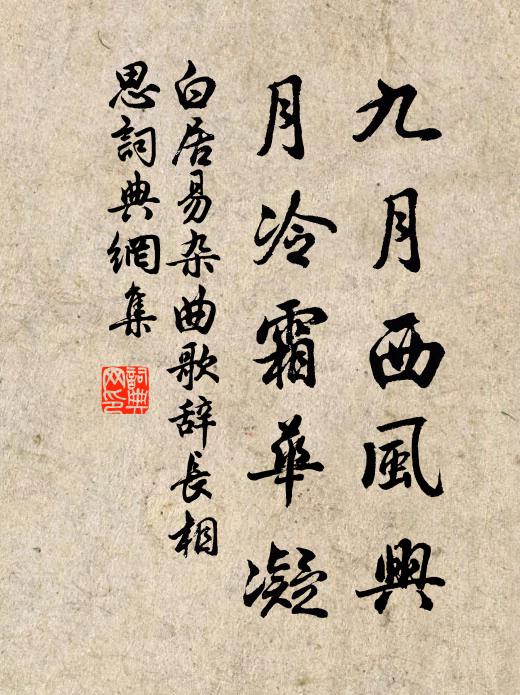 九月西風興
月冷霜華凝
白居易杂曲歌辞長相
思詞典網集
詞典
网印